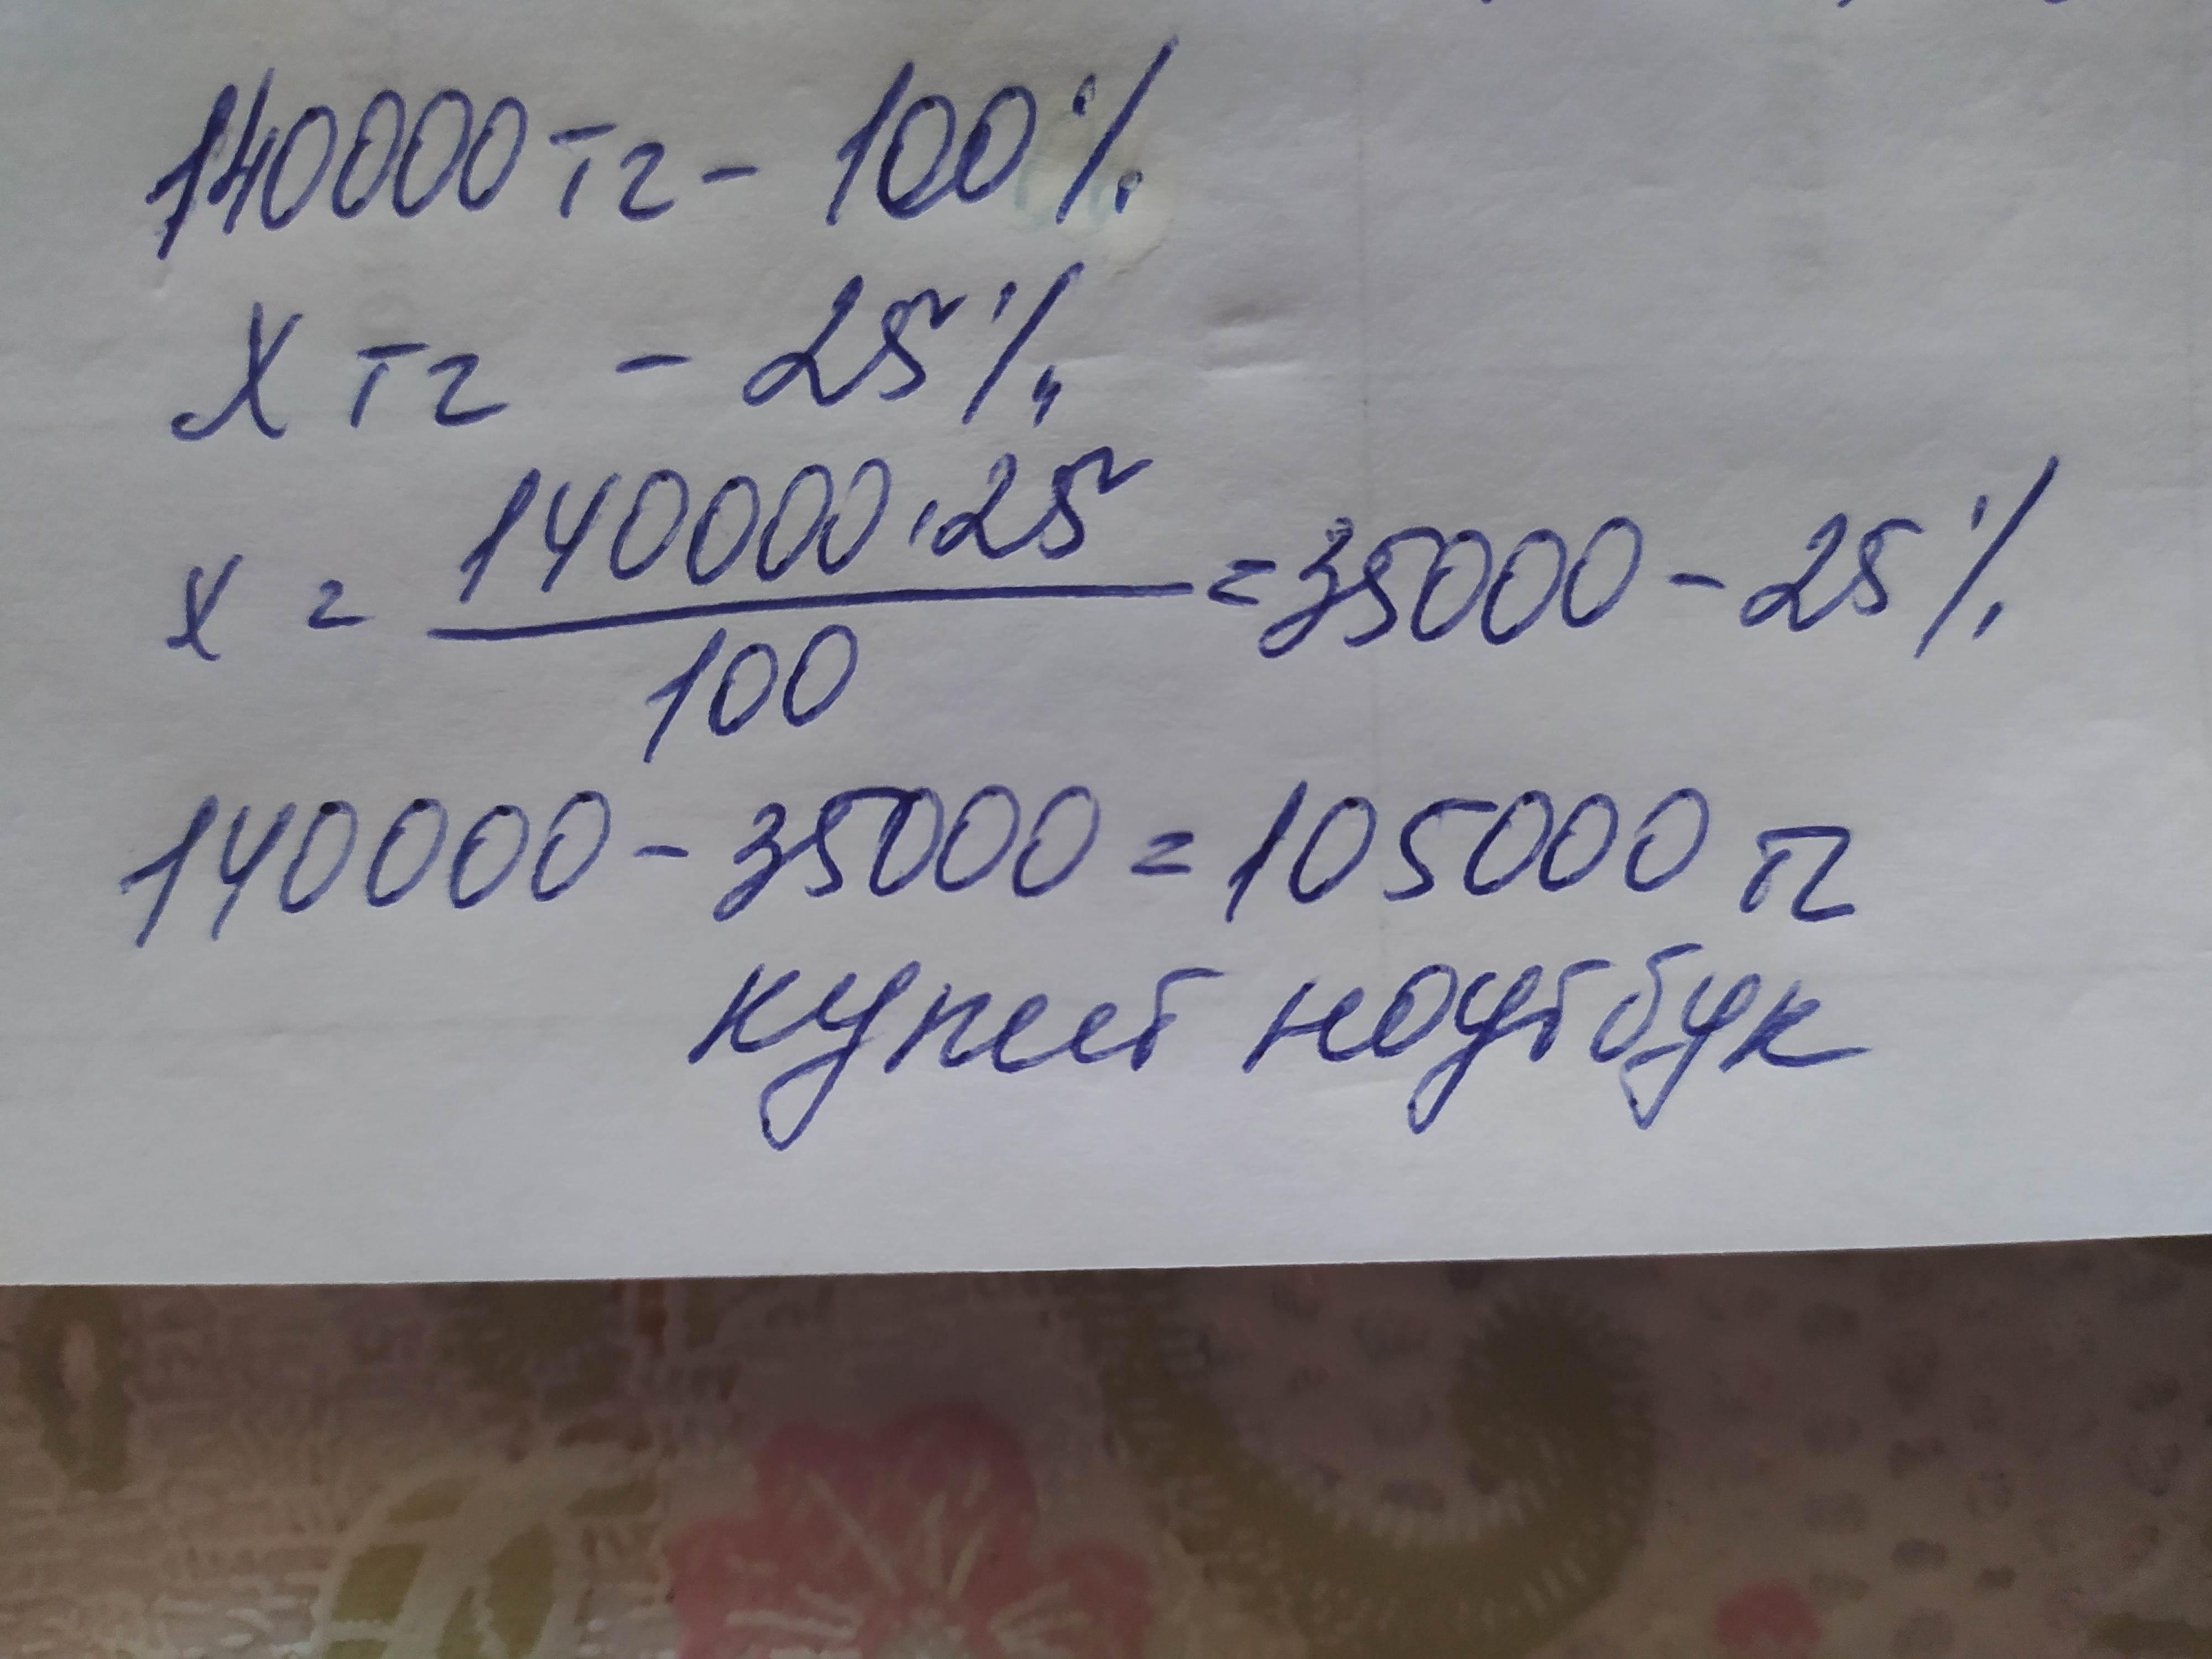 140000 тг - 100%
х тг - 25%
х = 140000·25 / 100 = 35000 - 25%
140000 - 35000 = 105000 тг
купит ноутбук